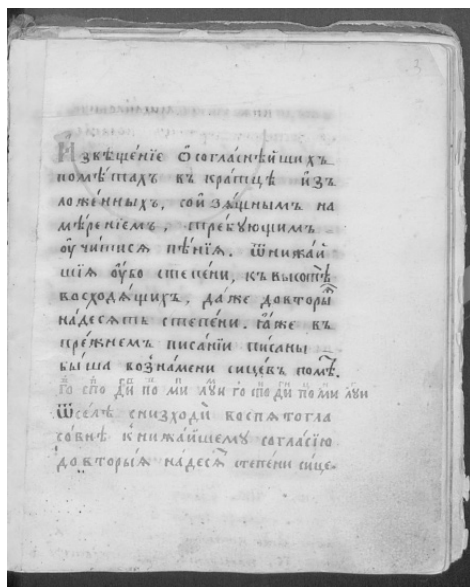 Извѣщенїе ѿ согласнѣйшихъ
помѣтахъ въ кратцѣ изъ
ложенныхъ, со изящнымъ на
мѣренїемъ, требующимъ
оучитися пѣнїя. ѿ нижай
шїя оубо степени, къ высотѣ
восходящихъ, даже до вторыя
надесять степени. ꙗже въ
прежнемъ писанїи писаны
быша во знамени сицевъ помѣ.
Го спо ди по ми луи го спо ди по ми луи
ѿселѣ снизходи воспятогла
совнѣ к нижайшему согласїю
до вторыїя надеся степени сице